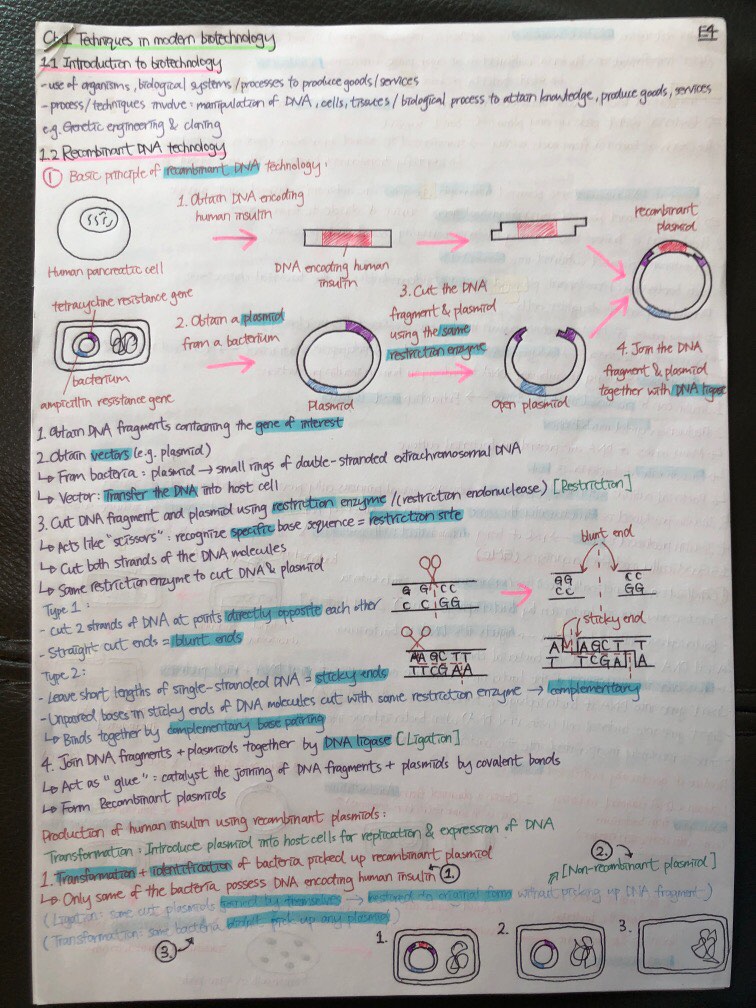 Ch.1 Techniques in modern biotechnology
E4
1.1 Introduction to biotechnology
- use of organisms, biological systems/processes to produce goods/services
- process/techniques involve: manipulation of DNA, cells, tissues/biological process to attain knowledge, produce goods, services
e.g. Genetic engineering & cloning
1.2 Recombinant DNA technology
① Basic principle of recombinant DNA technology:
1. Obtain DNA encoding
human insulin
recombinant
plasmid
Human pancreatic cell
DNA encoding human
insulin
3. Cut the DNA
fragment & plasmid
using the same
restriction enzyme
tetracycline resistance gene
2. Obtain a plasmid
from a bacterium
4. Join the DNA
fragment & plasmid
together with DNA ligase
bacterium
ampicillin resistance gene
Plasmid
Open plasmid
1. Obtain DNA fragments containing the gene of interest
2. Obtain vectors (e.g. plasmid)
↳ From bacteria: plasmid → small rings of double-stranded extrachromosomal DNA
↳ Vector: Transfer the DNA into host cell
3. Cut DNA fragment and plasmid using restriction enzyme/(restriction endonuclease) [Restriction]
↳ Acts like "scissors": recognize specific base sequence = restriction site
↳ Cut both strands of the DNA molecules
↳ Same restriction enzyme to cut DNA & plasmid
blunt end
G G CC
C C GG
GG
CC
CC
GG
Type 1:
- Cut 2 strands of DNA at points directly opposite each other
- Straight cut ends = blunt ends
sticky end
AAGCTT
TTCGAA
A AGCT T
T TCGA A
Type 2:
- Leave short lengths of single-stranded DNA = sticky ends
- Unpaired bases in sticky ends of DNA molecules cut with same restriction enzyme → complementary
↳ Binds together by complementary base pairing
4. Join DNA fragments + plasmids together by DNA ligase [Ligation]
↳ Act as "glue": catalyst the joining of DNA fragments + plasmids by covalent bonds
↳ Form Recombinant plasmids
Production of human insulin using recombinant plasmids:
Transformation: Introduce plasmid into host cells for replication & expression of DNA
1. Transformation + identification of bacteria picked up recombinant plasmid
2.
[Non-recombinant plasmid]
↳ Only some of the bacteria possess DNA encoding human insulin 1.
(Ligation: some cut plasmids joined by themselves → restored to original form without picking up DNA fragment)
(Transformation: some bacteria pick up any plasmid)
3.
1.
2.
3.